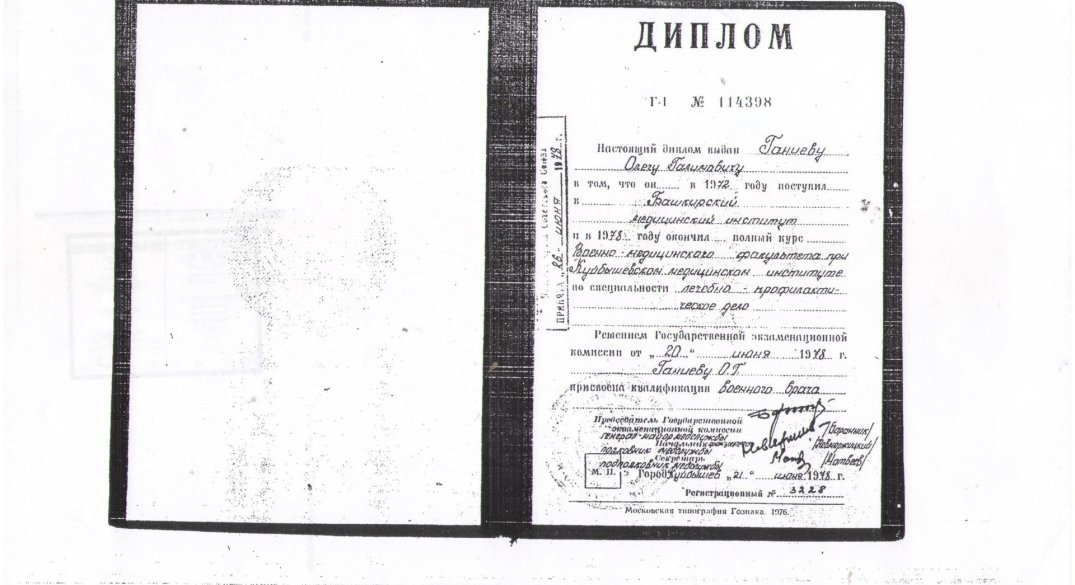 ДИПЛОМ
Г-I № 114398
Настоящий диплом выдан Ганиеву
Олегу Галимовичу
в том, что он в 1972 году поступил
в Башкирский
медицинский институт
и в 1978 году окончил полный курс
Военно-медицинского факультета при
Куйбышевском медицинском институте
по специальности лечебно-профилакти-
ческое дело
Решением Государственной экзаменационной
комиссии от „20“ июня 1978 г.
Ганиеву О.Г.
присвоена квалификация военного врача
Председатель Государственной
экзаменационной комиссии
генерал-майор медслужбы
Начальник факультета
полковник медслужбы
Секретарь
подполковник медслужбы /Матвеев/
М. П. Город Куйбышев „21“ июня 1978 г.
Регистрационный № 3228
Московская типография Гознака. 1976.
Советского Союза
ПРИНЯЛ „26“ июня 1978 г.